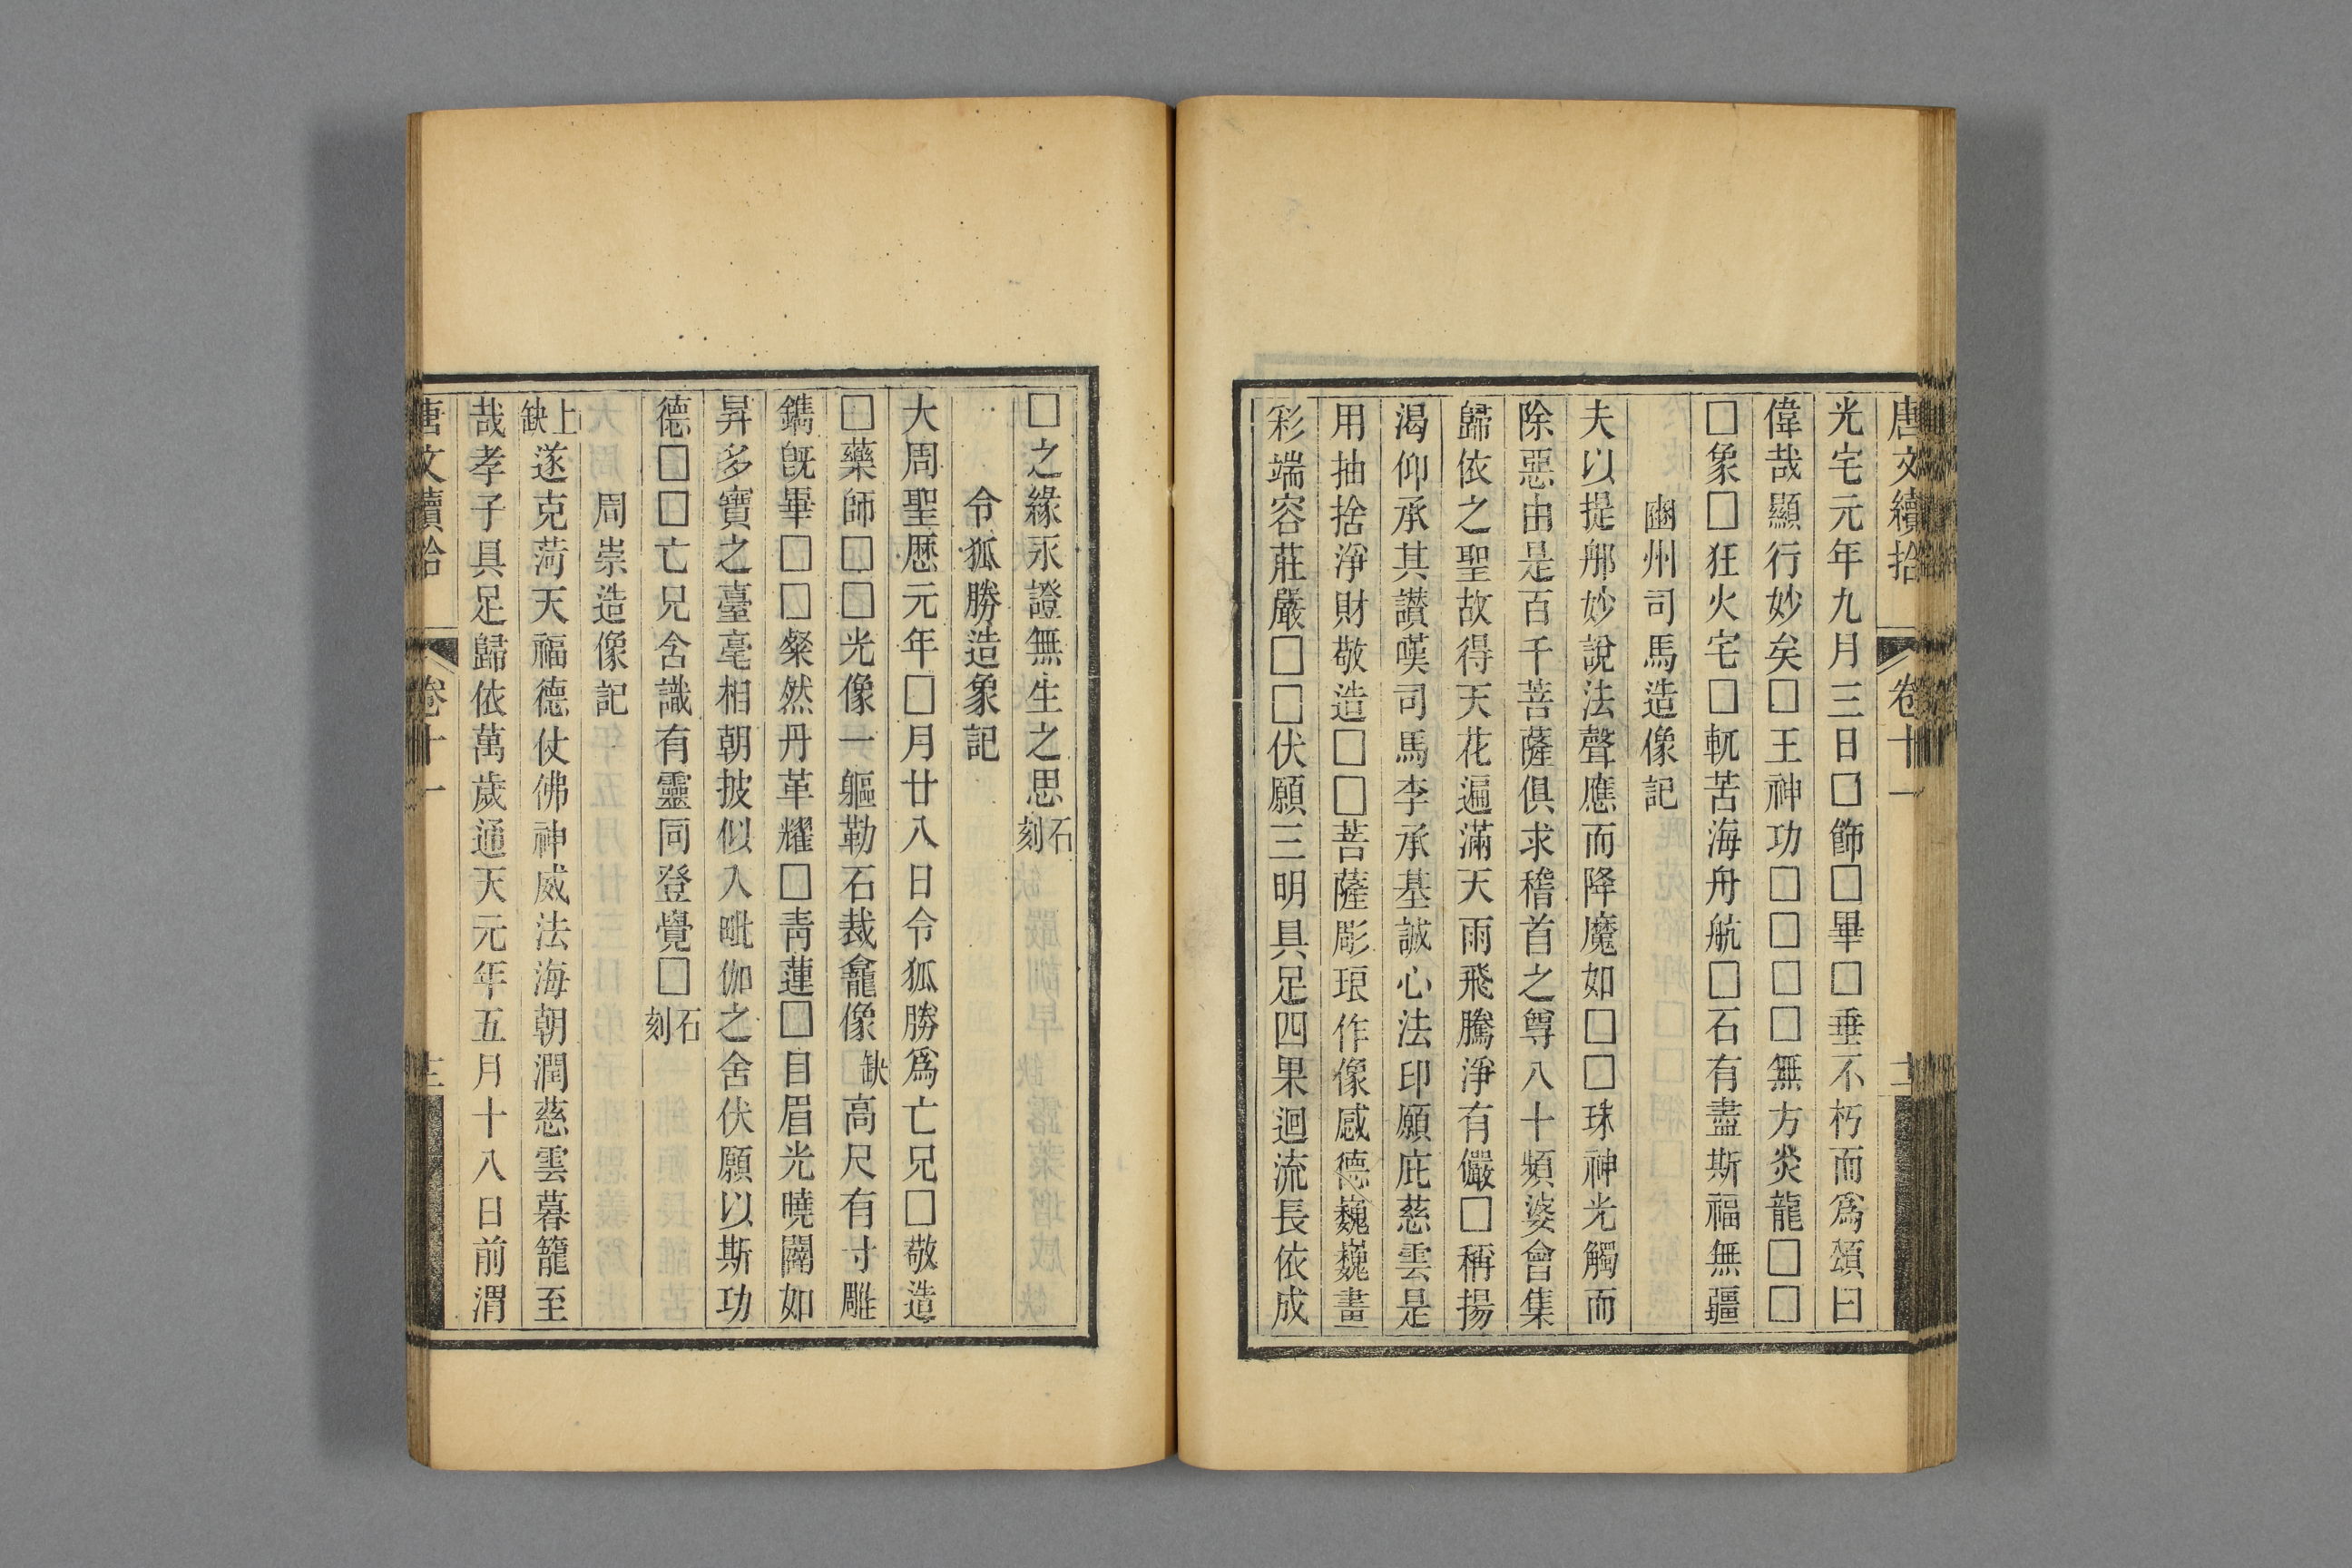 唐文續拾 卷十一
光宅元年九月三日□飾□畢□垂不朽而爲頌曰
偉哉顯行妙矣□王神功□□□□無方炎龍□□
□象□狂火宅□軏苦海舟航□石有盡斯福無疆
豳州司馬造像記
夫以提郍妙說法聲應而降魔如□□珠神光觸而
除惡由是百千菩薩俱求稽首之尊八十頻婆會集
歸依之聖故得天花遍滿天雨飛騰淨有儼□稱揚
渴仰承其讃嘆司馬李承基誠心法印願庇慈雲是
用抽捨淨財敬造□□菩薩彫琅作像感德巍巍畫
彩端容莊嚴□□伏願三明具足四果迴流長依成
□之緣永證無生之思石刻
令狐勝造象記
大周聖歷元年□月廿八日令狐勝爲亡兄□敬造
□藥師□□光像一軀勒石裁龕像缺高尺有寸雕
鐫旣畢□□粲然丹革耀□靑蓮□目眉光曉闢如
昇多寶之臺毫相朝披似入毗伽之舍伏願以斯功
德□□亡兄含識有靈同登覺□石刻
周崇造像記
上缺遂克荷天福德仗佛神威法海朝潤慈雲暮籠至
哉孝子具足歸依萬歲通天元年五月十八日前渭
唐文續拾 卷十一